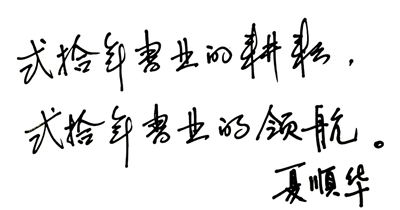 弍拾年書业的耕耘，
弍拾年書业的领航。
夏順华